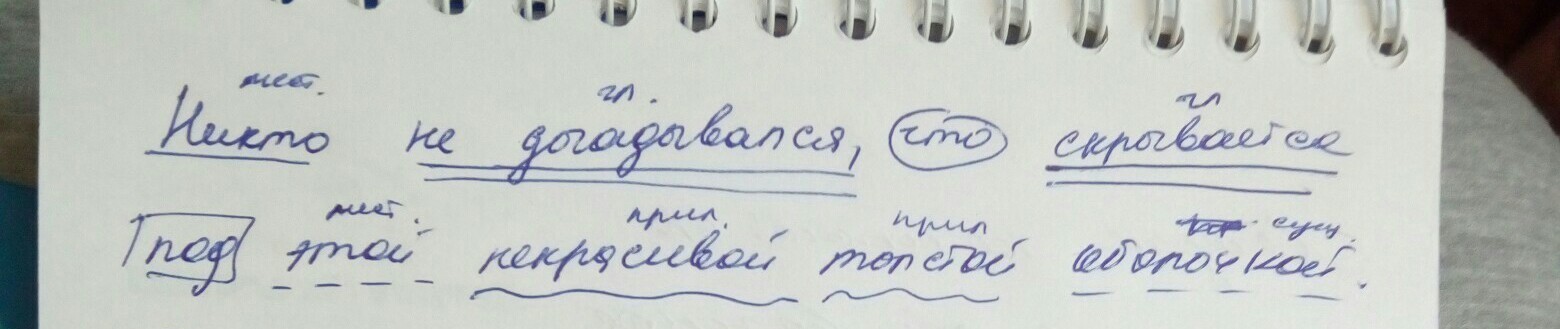 мест. гл. гл
Никто не догадывался, что скрывается
мест. прил. прил сущ.
под этой некрасивой толстой оболочкой.